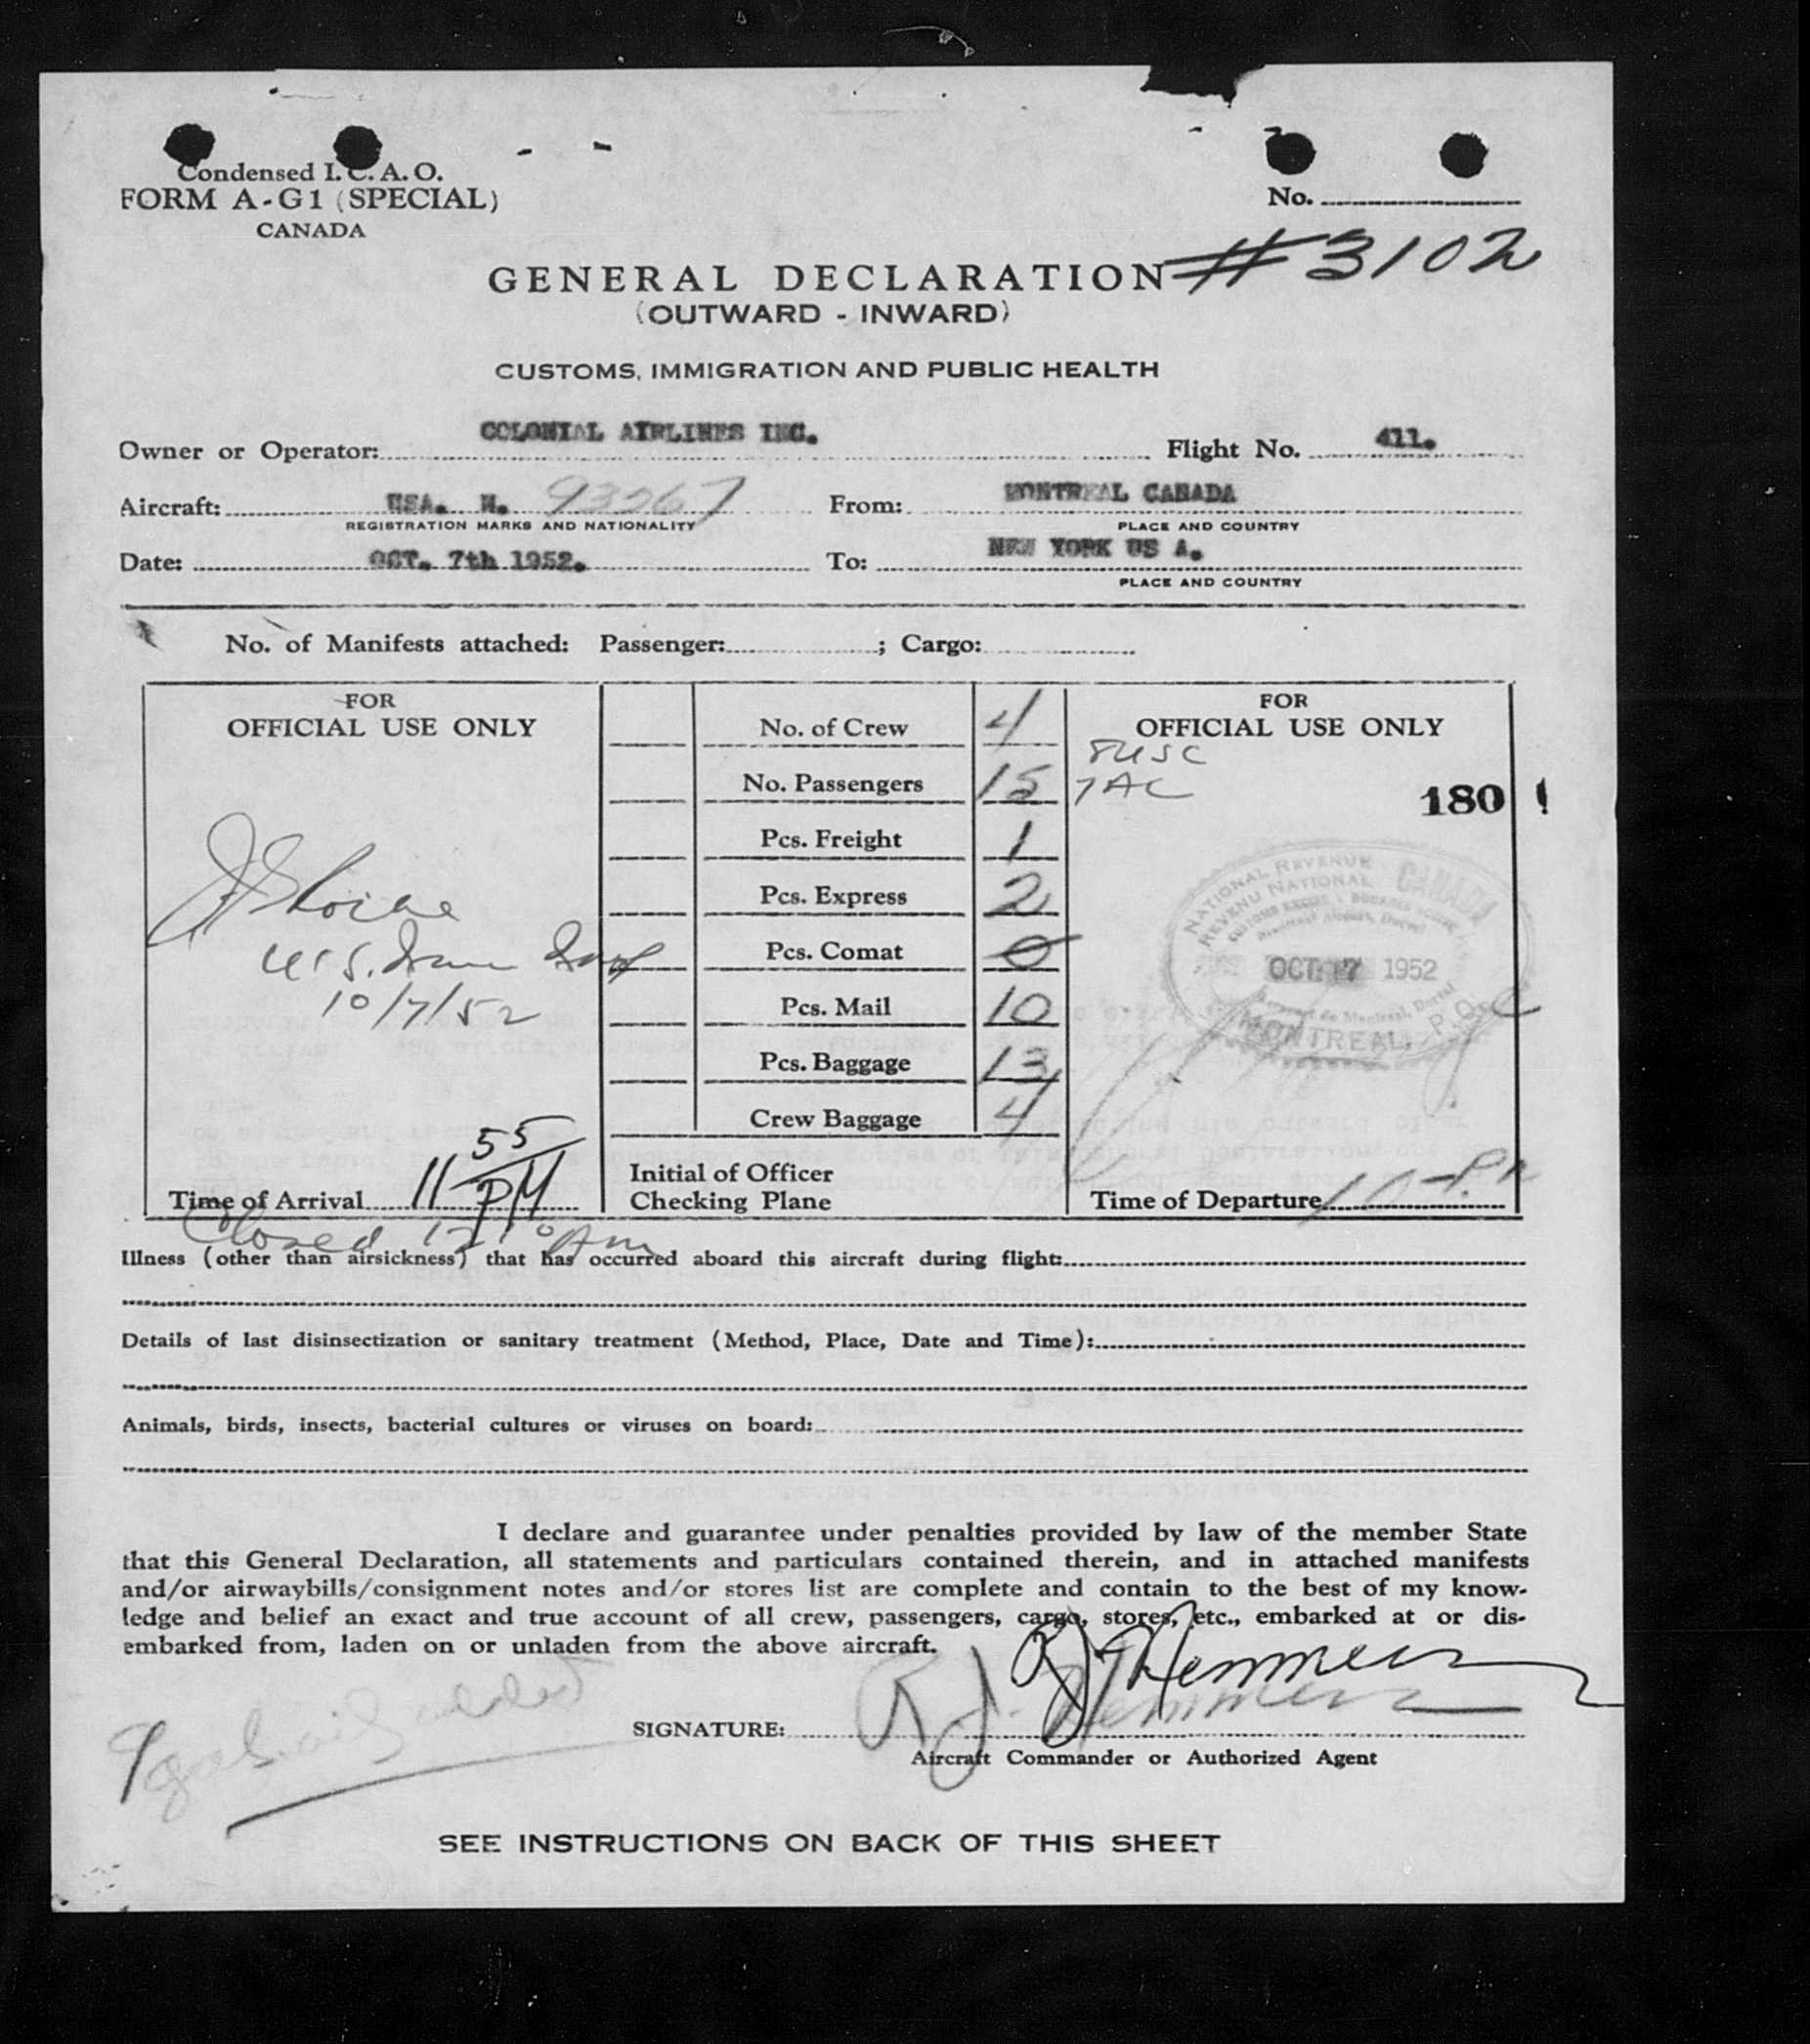 Condensed I. C. A. O.
FORM A-G1 (SPECIAL)
CANADA
No.
#3102
GENERAL DECLARATION
(OUTWARD - INWARD)
CUSTOMS, IMMIGRATION AND PUBLIC HEALTH
Owner or Operator: COLONIAL AIRLINES INC. Flight No. 411.
Aircraft: USA. N. 93267 From: MONTREAL CANADA
REGISTRATION MARKS AND NATIONALITY PLACE AND COUNTRY
Date: OCT. 7th 1952. To: NEW YORK US A.
PLACE AND COUNTRY
No. of Manifests attached: Passenger: ; Cargo:
FOR
OFFICIAL USE ONLY
10/7/52
Time of Arrival 11 55 PM
Closed 12 10 Am
No. of Crew 4
No. Passengers 15
Pcs. Freight 1
Pcs. Express 2
Pcs. Comat 0
Pcs. Mail 10
Pcs. Baggage 13
Crew Baggage 4
Initial of Officer
Checking Plane
FOR
OFFICIAL USE ONLY
8USC
7AC
180
NATIONAL REVENUE
REVENU NATIONAL
CANADA
Montreal Airport, Dorval
OCT 7 1952
Aeroport de Montreal, Dorval
MONTREAL, P.Q.
Time of Departure 10 P.M
Illness (other than airsickness) that has occurred aboard this aircraft during flight:
Details of last disinsectization or sanitary treatment (Method, Place, Date and Time):
Animals, birds, insects, bacterial cultures or viruses on board:
I declare and guarantee under penalties provided by law of the member State
that this General Declaration, all statements and particulars contained therein, and in attached manifests
and/or airwaybills/consignment notes and/or stores list are complete and contain to the best of my know-
ledge and belief an exact and true account of all crew, passengers, cargo, stores, etc., embarked at or dis-
embarked from, laden on or unladen from the above aircraft.
SIGNATURE: R J Hemmerr
Aircraft Commander or Authorized Agent
SEE INSTRUCTIONS ON BACK OF THIS SHEET